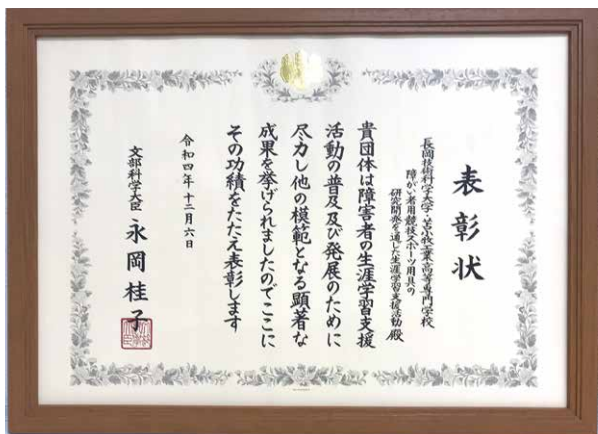 表彰状
長岡技術科学大学・苫小牧工業高等専門学校
障がい者用競技スポーツ用具の
研究開発を通した生涯学習支援活動 殿
貴団体は障害者の生涯学習支援
活動の普及及び発展のために
尽力し他の模範となる顕著な
成果を挙げられましたのでここに
その功績をたたえ表彰します
令和四年十二月六日
文部科学大臣 永岡桂子